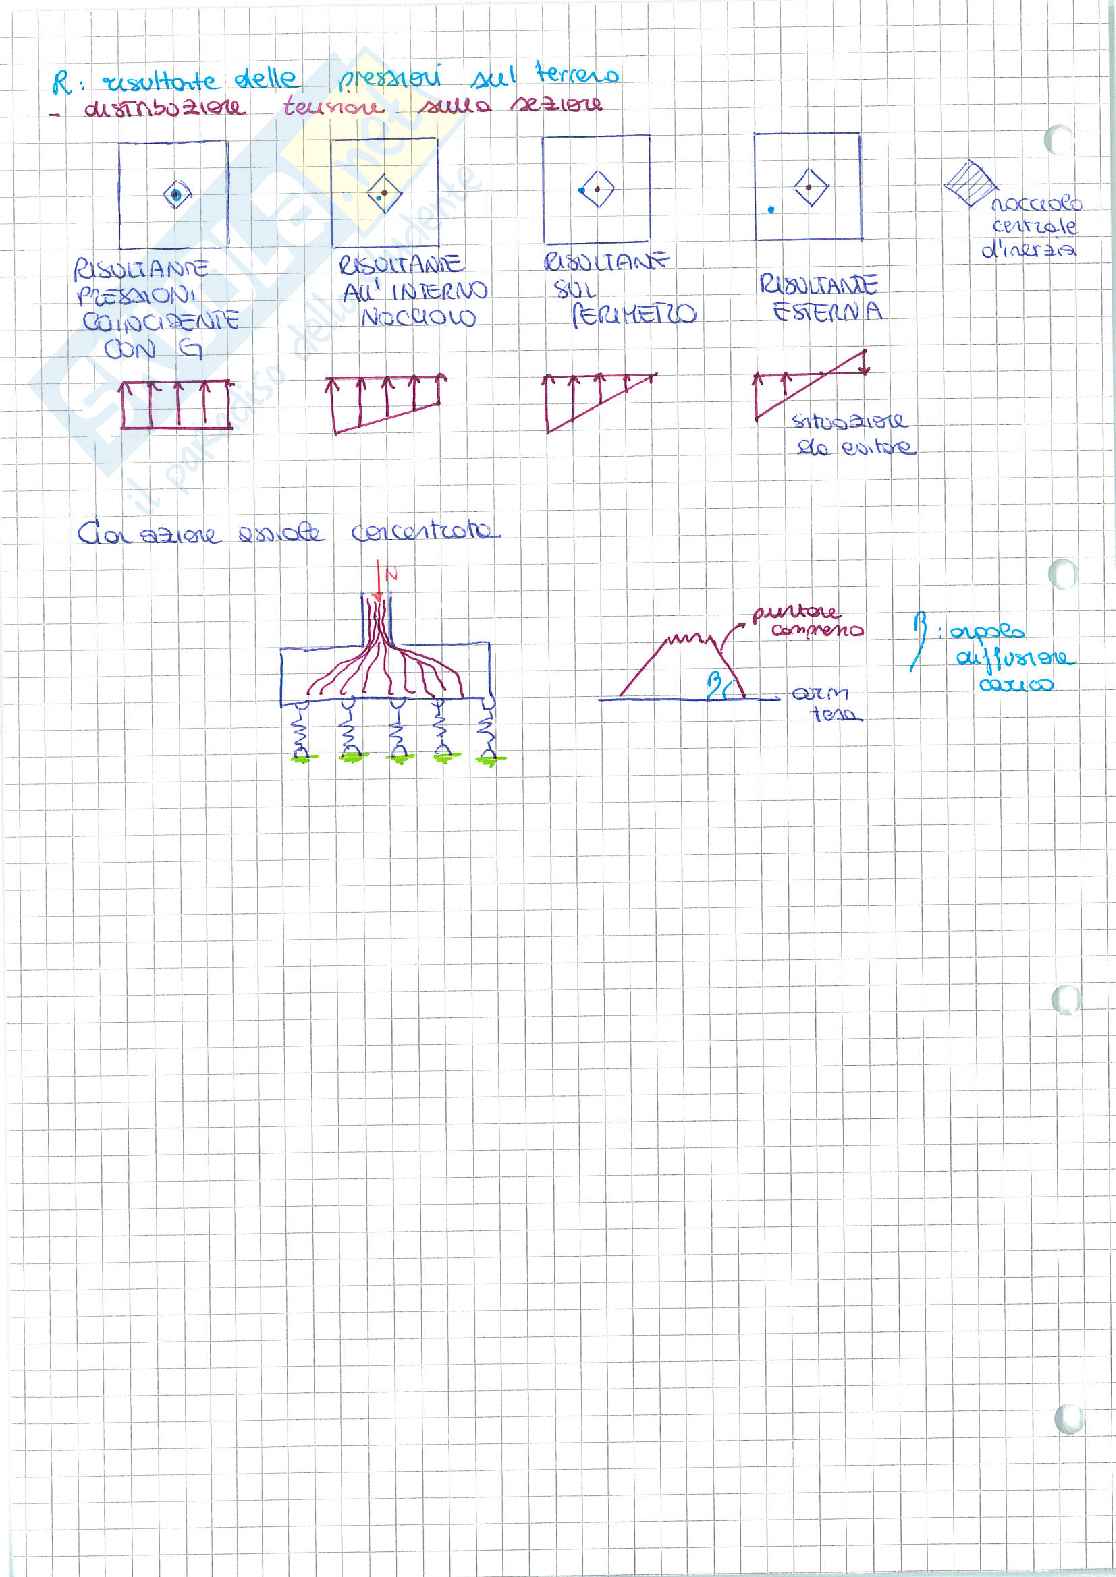 R: risultante delle pressioni sul terreno
- distribuzione tensione sulla sezione
RISULTANTE
PRESSIONI
COINCIDENTE
CON G
RISULTANTE
ALL'INTERNO
NOCCIOLO
RISULTANE
SUL
PERIMETRO
RISULTANTE
ESTERNA
nocciolo
centrale
d'inerzia
situazione
da evitare
Con azione assiale concentrata
N
puntone
compresso
β
arm
tesa
β: angolo
diffusione
carico
SKUOLA.net
il paradiso dello studente